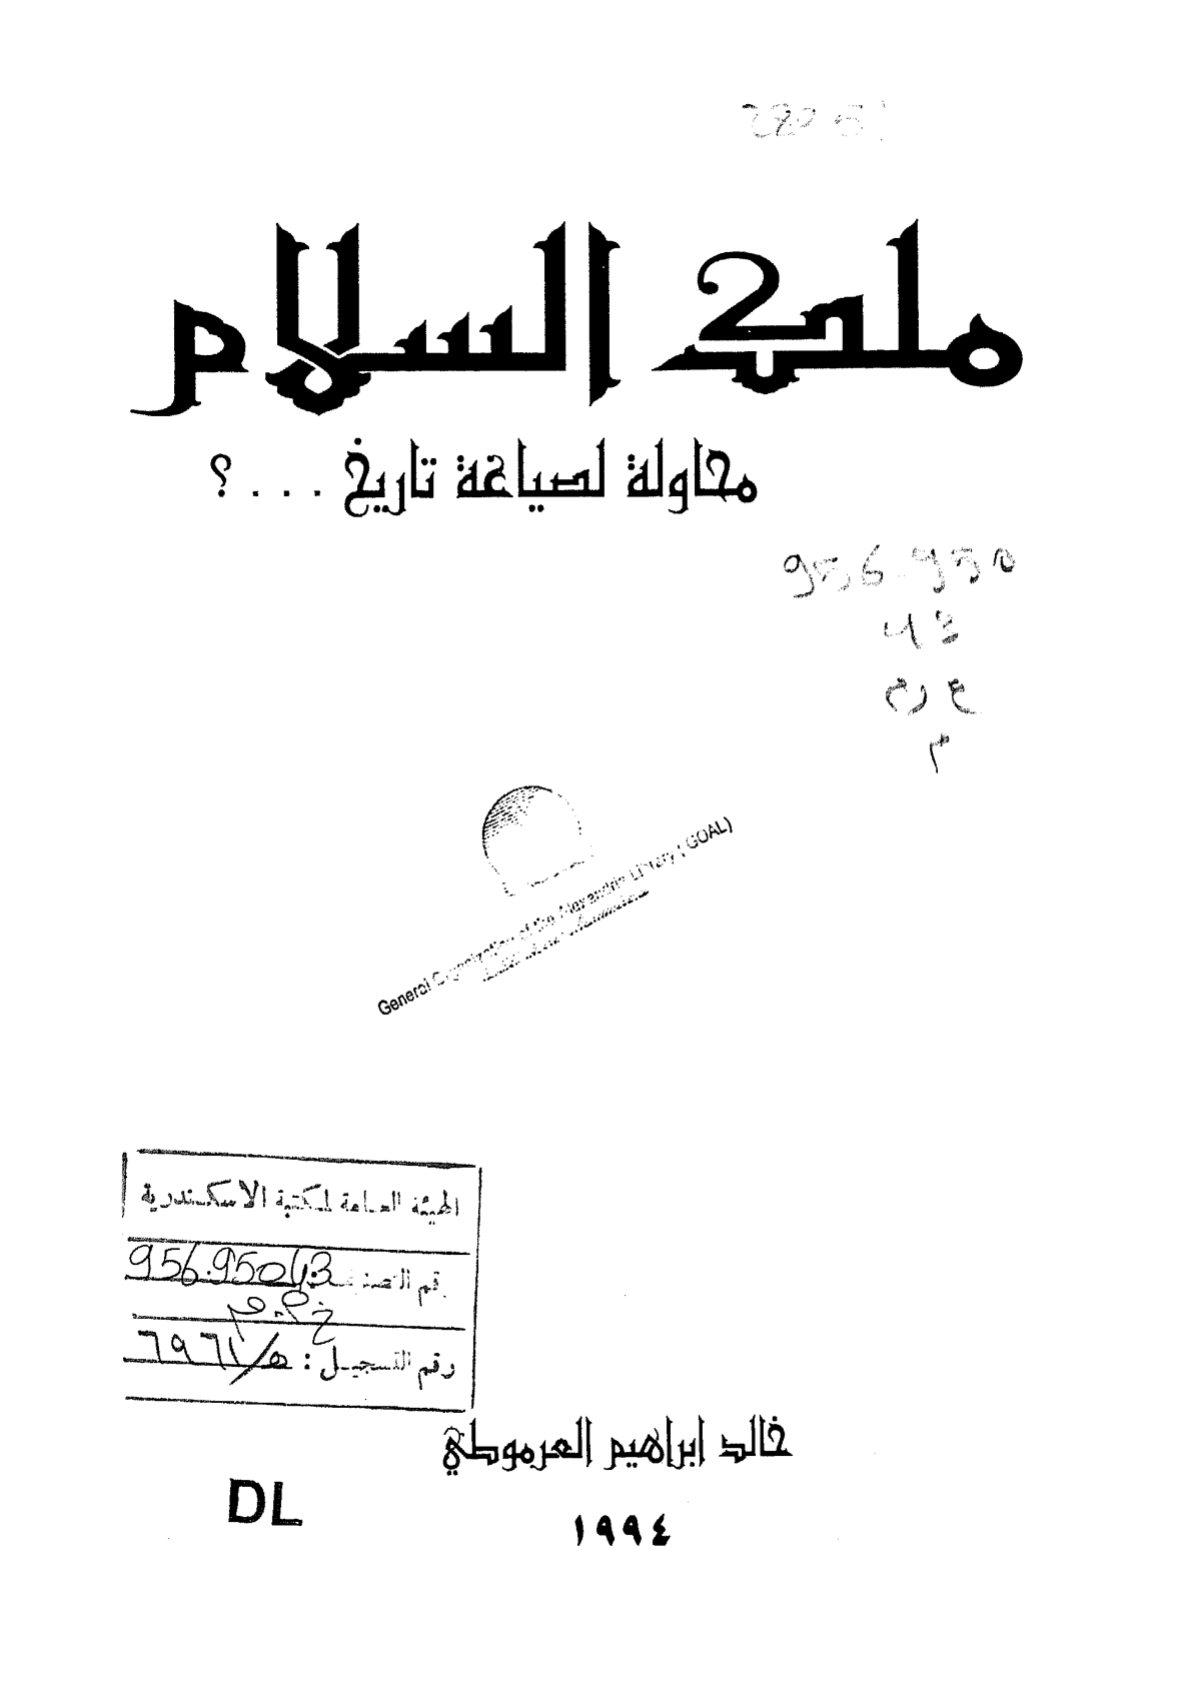 ملك السلام
محاولة لصياغة تاريخ . . . ؟
956.950
43
ع رم
م
General Organization of the Alexandria Library ( GOAL)
الهيئة العامة لمكتبة الاسكندرية
رقم التصنيف 956.95043
رقم التسجيل :
خالد ابراهيم العرموطي
DL
١٩٩٤